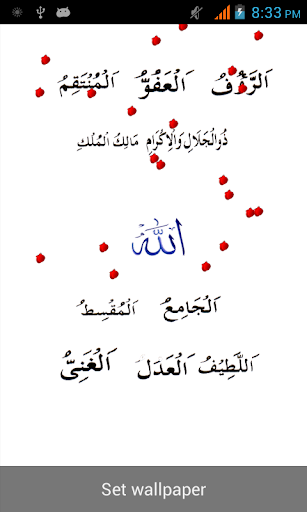 8:33 PM
اَلرَّؤُفُ اَلْعَفُوُّ اَلْمُنْتَقِمُ
ذُوالْجَلَالِ وَالْاِكْرَامِ مَالِكُ الْمُلْكِ
الله
اَلْجَامِعُ اَلْمُقْسِطُ
اَللَّطِيْفُ اَلْعَدَلُ اَلْغَنِىُّ
Set wallpaper